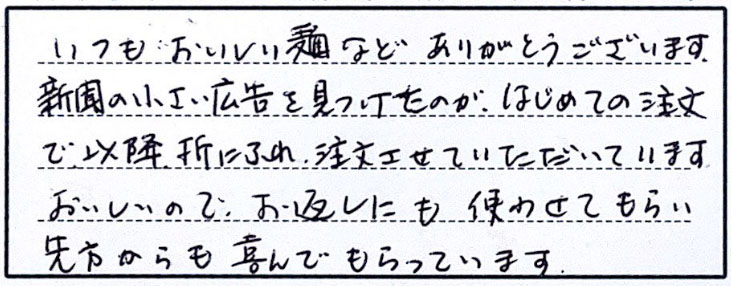 いつもおいしい麺などありがとうございます。
新聞の小さい広告を見つけたのが、はじめての注文
で、以降、折にふれ、注文させていただいています
おいしいので、お返しにも使わせてもらい
先方からも喜んでもらっています。